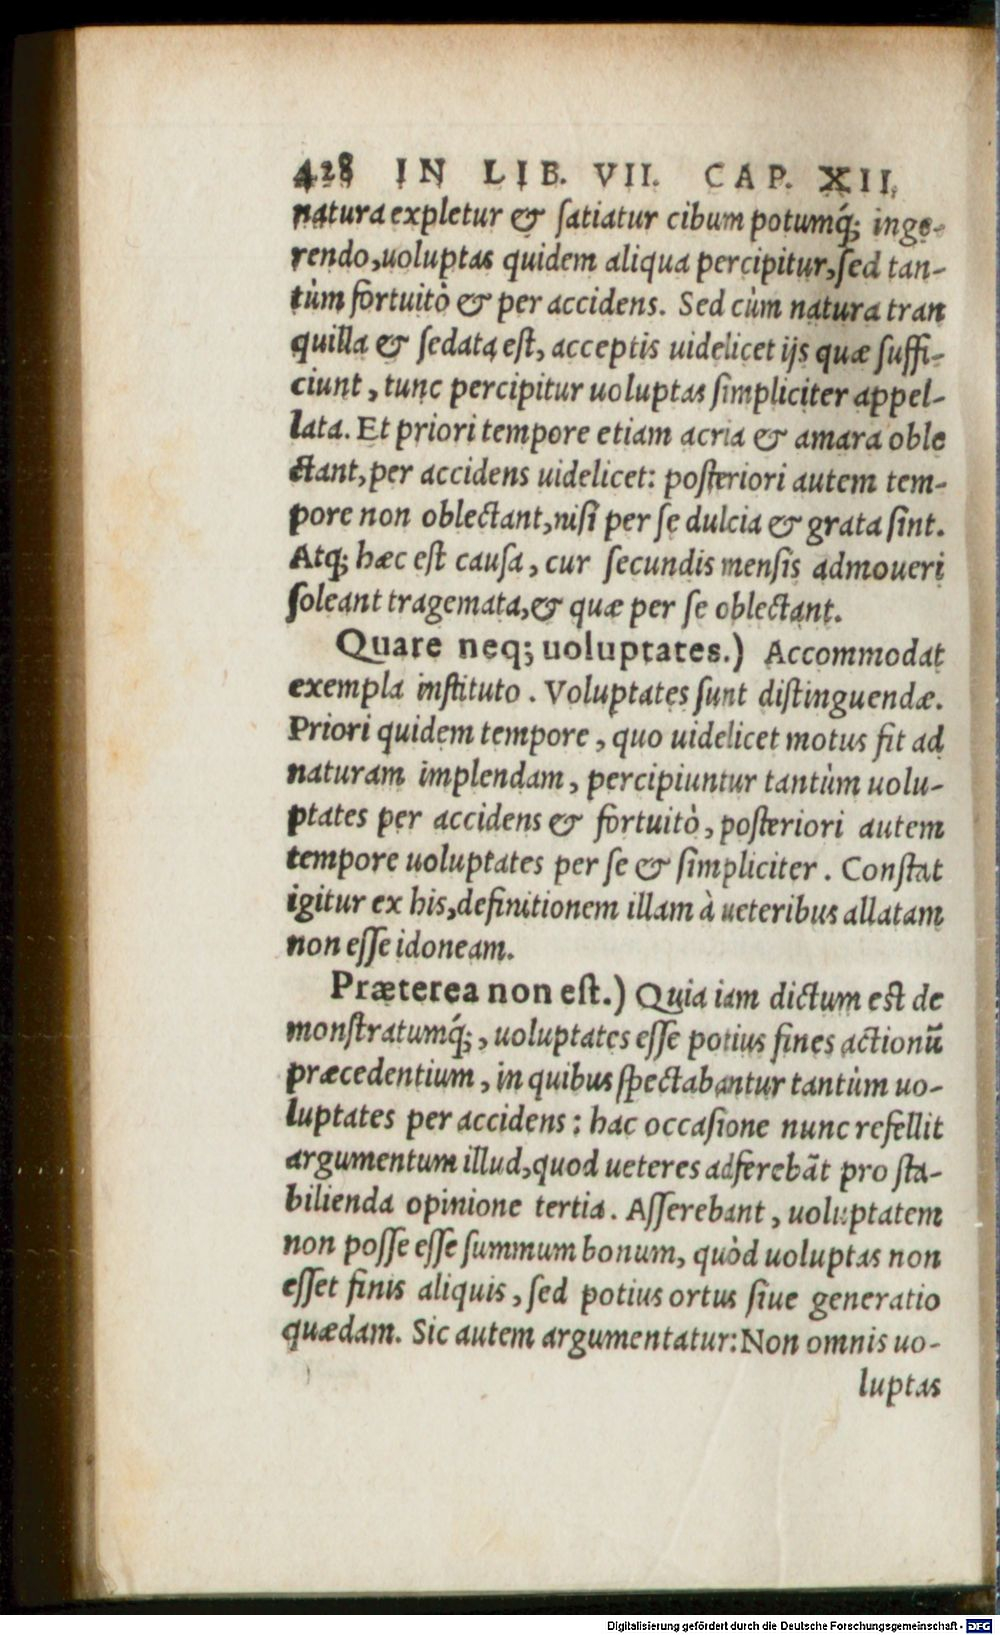 428 IN LIB. VII. CAP. XII.
natura expletur & ſatiatur cibum potumq́; inge-
rendo, uoluptas quidem aliqua percipitur, ſed tan-
tùm fortuitò & per accidens. Sed cùm natura tran
quilla & ſedata eſt, acceptis uidelicet ijs quæ ſuffi-
ciunt, tunc percipitur uoluptas ſimpliciter appel-
lata. Et priori tempore etiam acria & amara oble
ctant, per accidens uidelicet: poſteriori autem tem-
pore non oblectant, niſi per ſe dulcia & grata ſint.
Atq; hæc eſt cauſa, cur ſecundis menſis admoueri
ſoleant tragemata, & quæ per ſe oblectant.
Quare neq; uoluptates.) Accommodat
exempla inſtituto. Voluptates ſunt diſtinguendæ.
Priori quidem tempore, quo uidelicet motus fit ad
naturam implendam, percipiuntur tantùm uolu-
ptates per accidens & fortuitò, poſteriori autem
tempore uoluptates per ſe & ſimpliciter. Conſtat
igitur ex his, definitionem illam à ueteribus allatam
non eſſe idoneam.
Præterea non eſt.) Quia iam dictum eſt de
monſtratumq́;, uoluptates eſſe potius fines actionū
præcedentium, in quibus ſpectabantur tantùm uo-
luptates per accidens: hac occaſione nunc refellit
argumentum illud, quod ueteres adferebāt pro ſta-
bilienda opinione tertia. Aſſerebant, uoluptatem
non poſſe eſſe ſummum bonum, quòd uoluptas non
eſſet finis aliquis, ſed potius ortus ſiue generatio
quædam. Sic autem argumentatur: Non omnis uo-
luptas
Digitalisierung gefördert durch die Deutsche Forschungsgemeinschaft - DFG